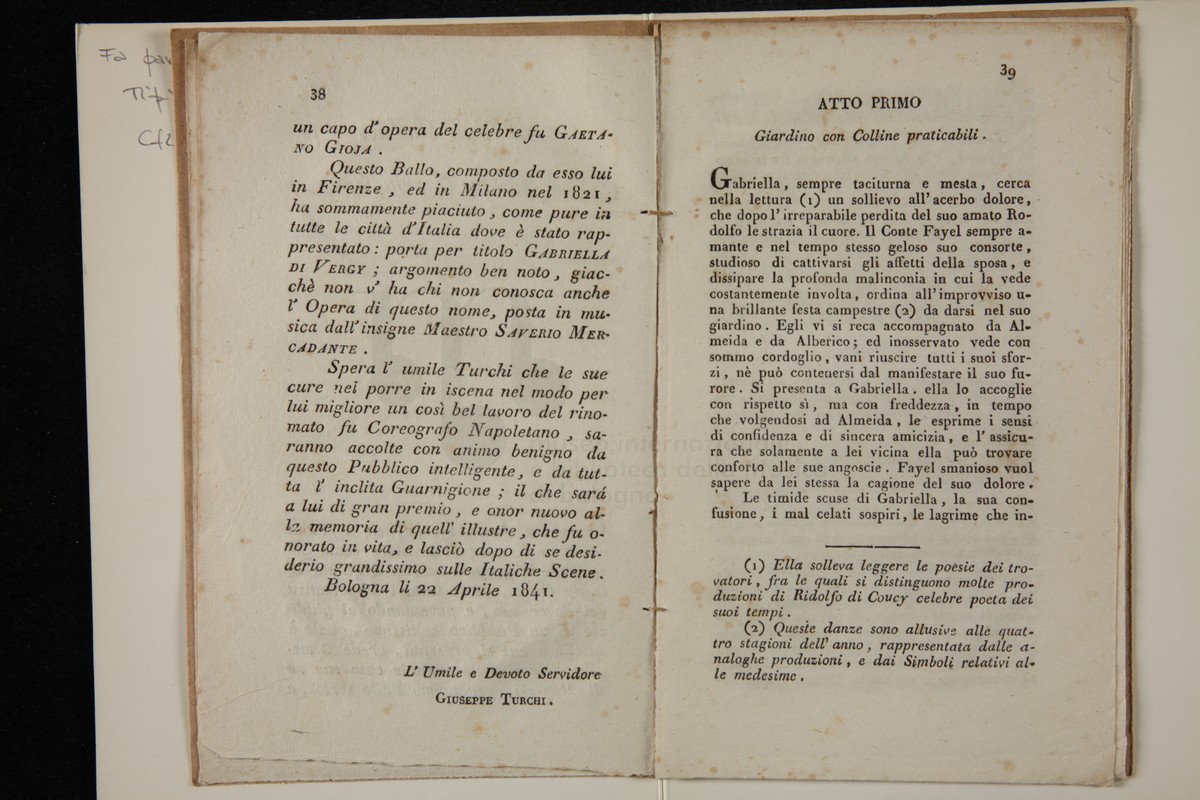 Fa
38
un capo d'opera del celebre fu GAETA-
NO GIOJA .
Questo Ballo, composto da esso lui
in Firenze , ed in Milano nel 1821 ,
ha sommamente piaciuto , come pure in
tutte le città d'Italia dove è stato rap-
presentato : porta per titolo GABRIELLA
DI VERGY ; argomento ben noto , giac-
chè non v' ha chi non conosca anche
l' Opera di questo nome, posta in mu-
sica dall'insigne Maestro SAVERIO MER-
CADANTE .
Spera l' umile Turchi che le sue
cure nel porre in iscena nel modo per
lui migliore un così bel lavoro del rino-
mato fu Coreografo Napoletano , sa-
ranno accolte con animo benigno da
questo Pubblico intelligente, e da tut-
ta l' inclita Guarnigione ; il che sarà
a lui di gran premio , e onor nuovo al-
la memoria di quell' illustre , che fu o-
norato in vita, e lasciò dopo di se desi-
derio grandissimo sulle Italiche Scene .
Bologna li 22 Aprile 1841.
L' Umile e Devoto Servidore
GIUSEPPE TURCHI .
39
ATTO PRIMO
Giardino con Colline praticabili .
Gabriella , sempre taciturna e mesta , cerca
nella lettura (1) un sollievo all'acerbo dolore ,
che dopo l' irreparabile perdita del suo amato Ro-
dolfo le strazia il cuore. Il Conte Fayel sempre a-
mante e nel tempo stesso geloso suo consorte ,
studioso di cattivarsi gli affetti della sposa , e
dissipare la profonda malinconia in cui la vede
costantemente involta , ordina all'improvviso u-
na brillante festa campestre (2) da darsi nel suo
giardino . Egli vi si reca accompagnato da Al-
meida e da Alberico ; ed inosservato vede con
sommo cordoglio , vani riuscire tutti i suoi sfor-
zi , nè può contenersi dal manifestare il suo fu-
rore . Si presenta a Gabriella . ella lo accoglie
con rispetto sì , ma con freddezza , in tempo
che volgendosi ad Almeida , le esprime i sensi
di confidenza e di sincera amicizia , e l' assicu-
ra che solamente a lei vicina ella può trovare
conforto alle sue angoscie . Fayel smanioso vuol
sapere da lei stessa la cagione del suo dolore .
Le timide scuse di Gabriella , la sua con-
fusione , i mal celati sospiri , le lagrime che in-
(1) Ella solleva leggere le poesie dei tro-
vatori , fra le quali si distinguono molte pro-
duzioni di Ridolfo di Coucy celebre poeta dei
suoi tempi .
(2) Queste danze sono allusive alle quat-
tro stagioni dell' anno , rappresentata dalle a-
naloghe produzioni , e dai Simboli relativi al-
le medesime .